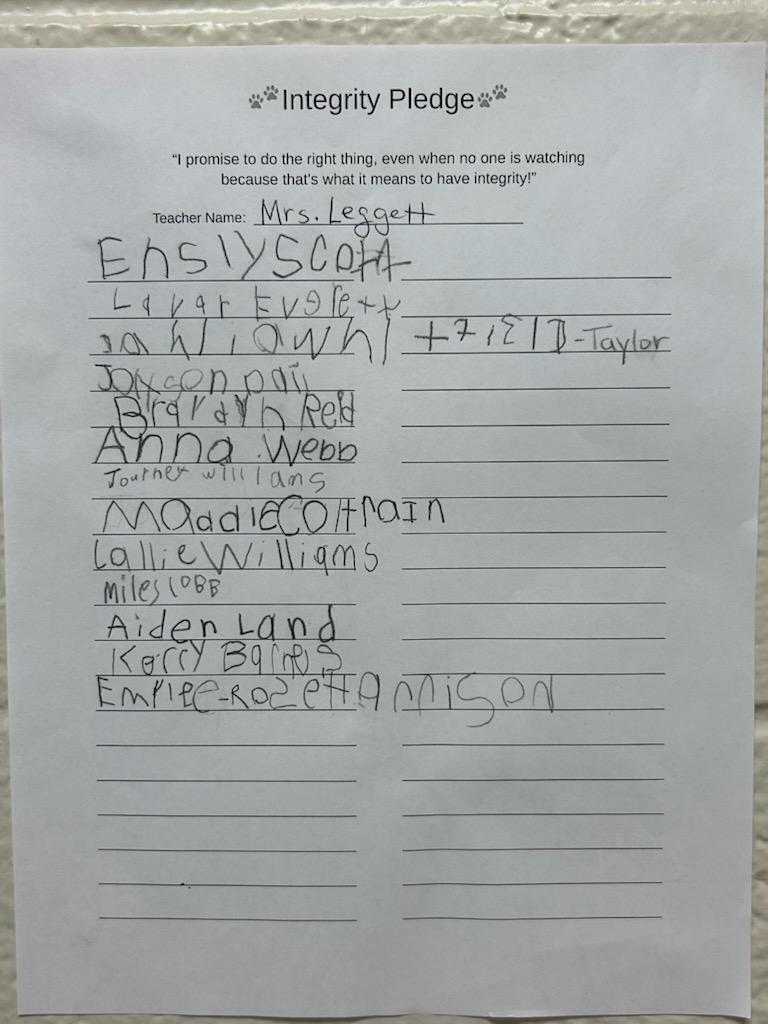 Integrity Pledge
“I promise to do the right thing, even when no one is watching
because that's what it means to have integrity!”
Teacher Name: Mrs. Leggett
EnslyScott
Lavar Everett
-Taylor
Jaxson
Reid
Anna Webb
Journey williams
MaddIECOltraIn
CallieWilliams
miles CoBB
Aiden Land
Korry Barnes
EmpIee-RozettA